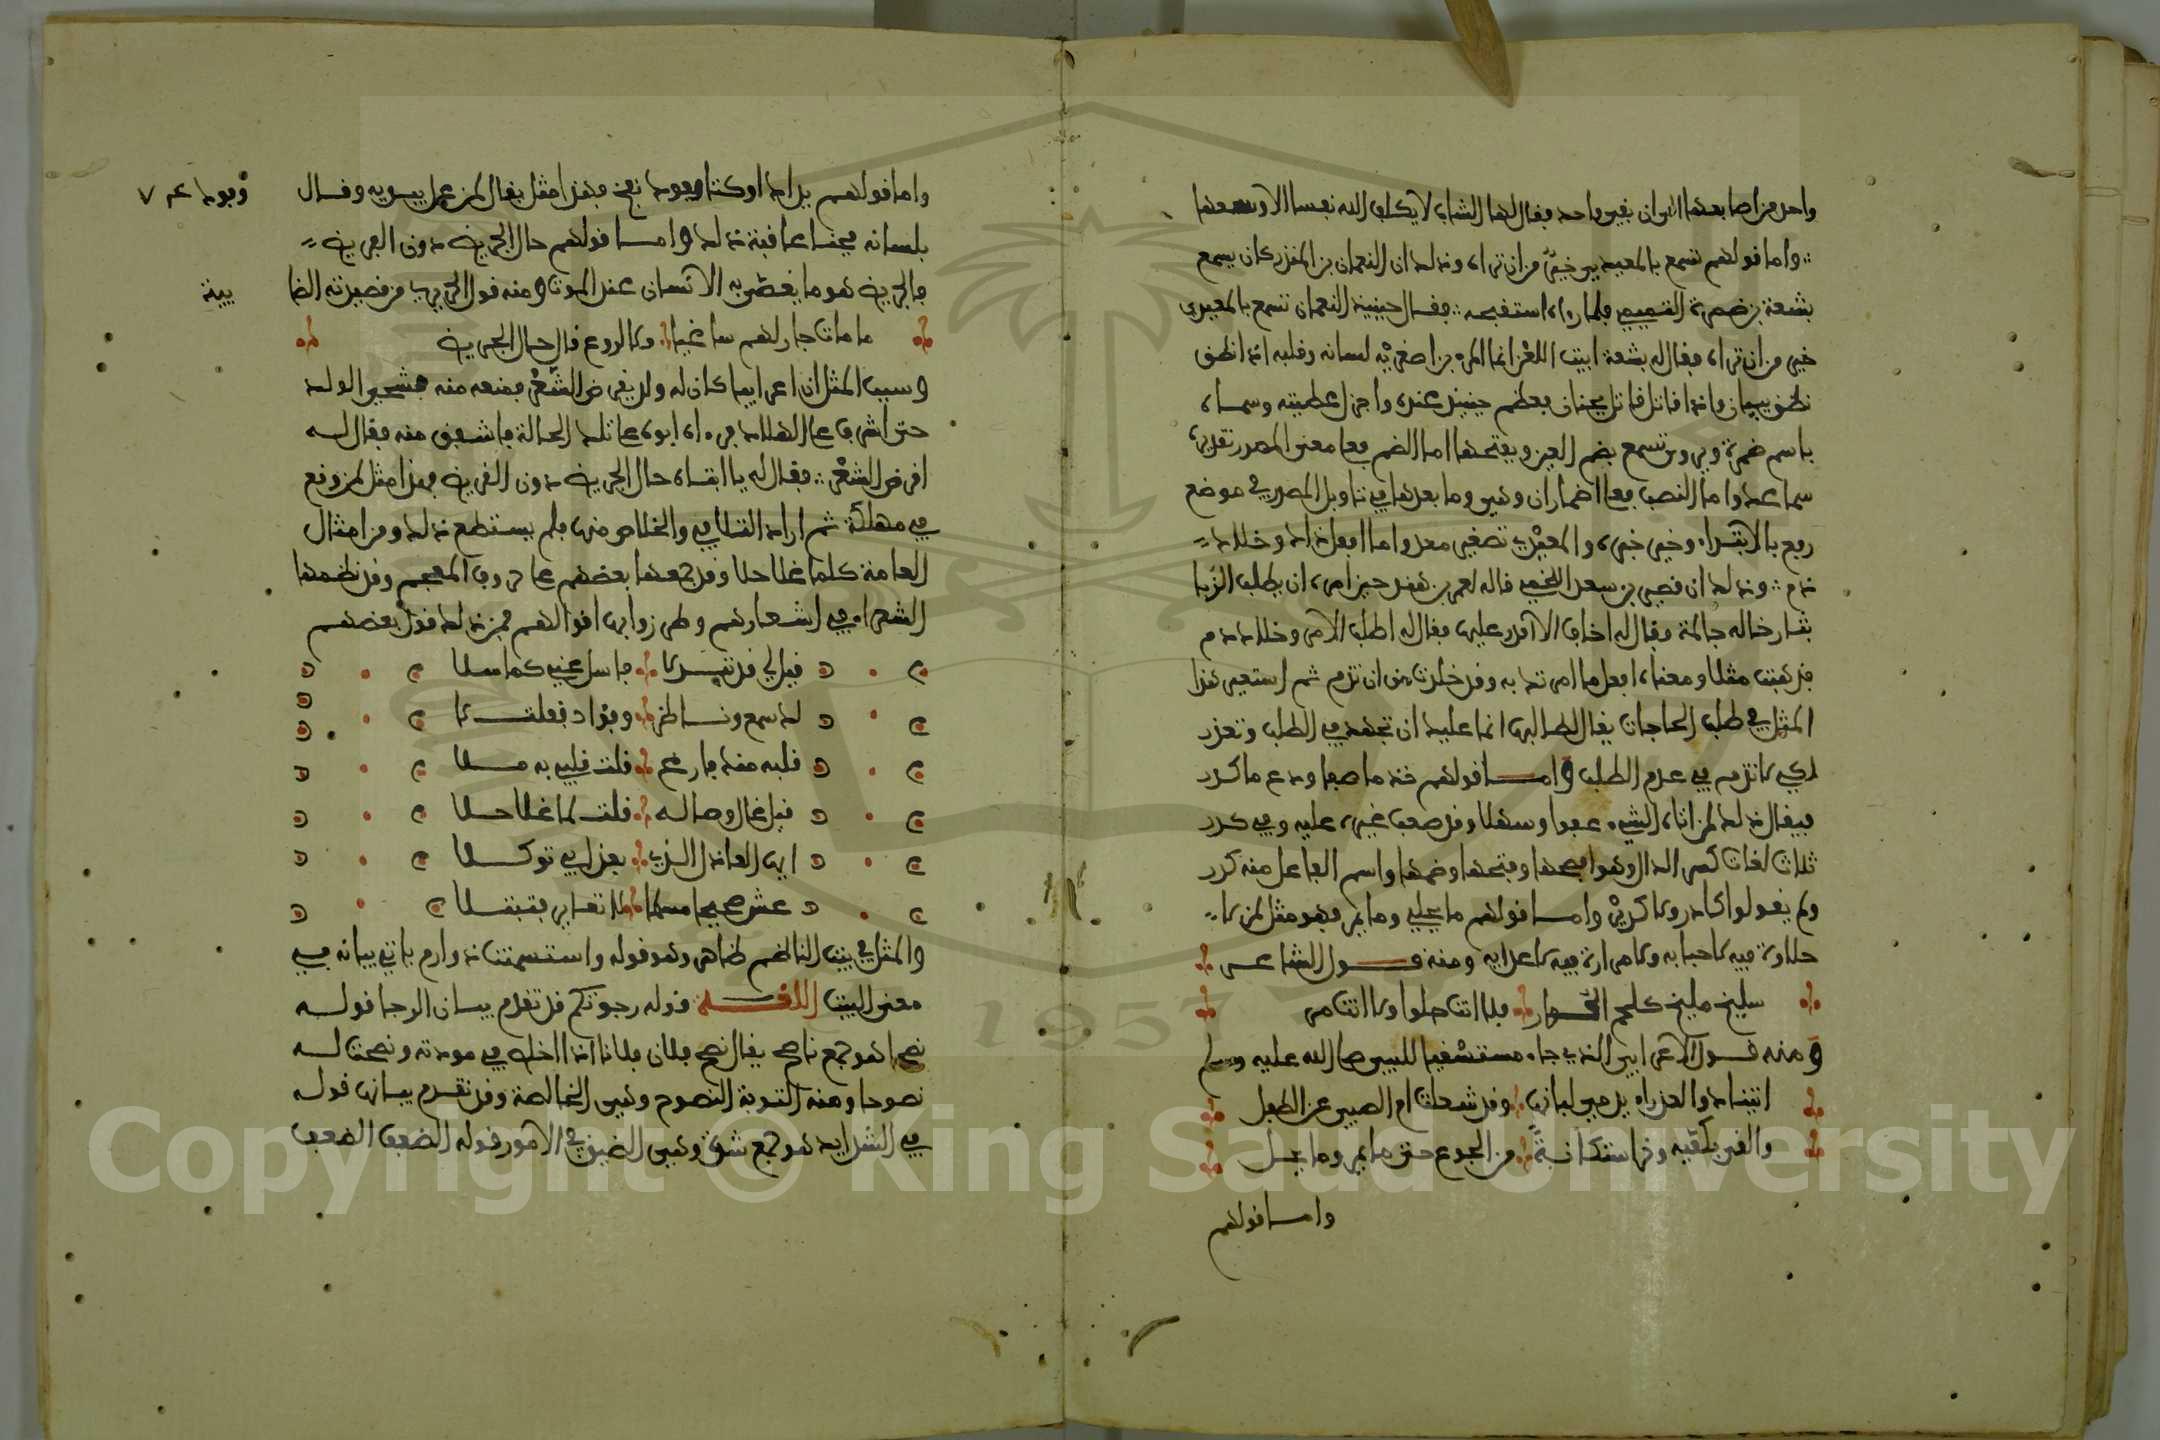 واحد من اصابعها الى ان بقي واحد فقال لها الشاب لا يكلف الله نفسا الا وسعها
واما قولهم تسمع بالمعيدي خير من ان تراه وذلك ان النعمان بن المنذر كان يسمع
بشقة بن ضمرة التميمي فلما رءاه استقبحه فقال حينئذ النعمان تسمع بالمعيدي
خير من ان تراه فقال له بشقة ابيت اللعن انما المرء بن اصغريه لسانه وقلبه اذا نطق
نطق ببيان واذا قاتل قاتل بجنان فعظم حينئذ عنده واجزل عطيته وسماه
باسم ضمرة ويروى تسمع بضم العين وبفتحها اما الضم فعلى معنى المصدر تقديره
سماعك واما النصب فعلى اضمار ان وهي وما بعدها في تاويل المصدر في موضع
رفع بالابتداء وخير خبره والمعيدي تصغير معد واما افعل ذاك وخلاك
ذم وذلك ان قصير بن سعد اللخمي قاله لعمر بن هند حين امره ان يطلب الزبا
بثار خاله جذيمة فقال له اخاف لا اقدر عليها فقال له اطلب الامر وخلاك ذم
فذهبت مثلا ومعناه افعل ما امرتك به وقد خلوت من ان تذم ثم استعير هذا
المثل في طلب الحاجات يقال للطالب انما عليك ان تجتهد في الطلب وتعذر
لكي لا تذم في عدم الطلب واما قولهم خذ ما صفا ودع ما كدر
فيقال ذلك لمن اتاه الشيء عفوا وسهلا وقد صعب غيره عليه وفي كدر
ثلاث لغات كسر الدال وهو افصحها وفتحها وضمها واسم الفاعل منه كدر
ولم يقولوا كادر ولا كدير واما قولهم ما يحلي وما يمر فهو مثل لمن لا
حلاوة فيه لاحبابه ولا مرارة فيه لاعدايه ومنه قول الشاعر
سليخ مليخ كلحم الحوار فلا انت حلو ولا انت مر
ومنه قول الاعرابي الذي جاء مستشفيا للنبي صلى الله عليه وسلم
اتيناك والعذراء يدمى لبانها وقد شغلت ام الصبي عن الطفل
والقى بكفيه وفي استكانة من الجوع حتى ما يمر وما يحل
واما قولهم
واما قولهم يداك اوكتا وفوك نفخ فهذا مثل يقال لمن عمل بيديه وقال
وفوك عـ ٧
بلسانه فجنى عاقبة ذلك واما قولهم حال الجريض دون القريض
فالجريض هو ما يغص به الانسان عند الموت ومنه قول الحريري من قصيدته الظا
ييه
ما مات جار لهم ساغبا ولا لروع قال حال الجريض
وسبب المثل ان اعرابيا كان له ولد يقرض الشعر فمنعه منه فشجي الولد
حتى اشرف على الهلاك فرءاه ابوه على تلك الحالة فاشفق منه فقال له
اقرض الشعر فقال له يا ابتاه حال الجريض دون القريض فهذا مثل لمن وقع
في مهلكة ثم اراد التلافي والخلاص منها فلم يستطع ذلك ومن امثال
العامة كلما غلا حلا وقد جمعها بعضهم على حروف المعجم وقد نظمها
الشعراء في اشعارهم وطرزوا بها اقوالهم فمن ذلك قول بعضهم
قيل لي قد تبدلا فاسل عنه كما سلا
لك سمع وناظر وفؤاد فقلت لا
قلبه منك فارغ قلت قلبي به ملا
قيل غال وصاله قلت لما غلا حلا
ايها العاذل الذي بعذلي توكلا
عش صحيحا مسلما لا تعاير فتبتلا
والمثل في بيت الناظم ظاهر وهو قوله واستسمنت ذا ورم ياتي بيانه في
معنى البيت اللغة قوله رجوتكم قد تقدم بيان الرجا قوله
نصحا هو جمع ناصح يقال نصح فلان فلانا اذا اخلص في مودته ونصحت له
نصوحا ومنه التوبة النصوح وهي الخالصة وقد تقدم بيانها قوله
في الشدايد هو جمع شدة وهي الضيق في الامور قوله الضعف الضعف